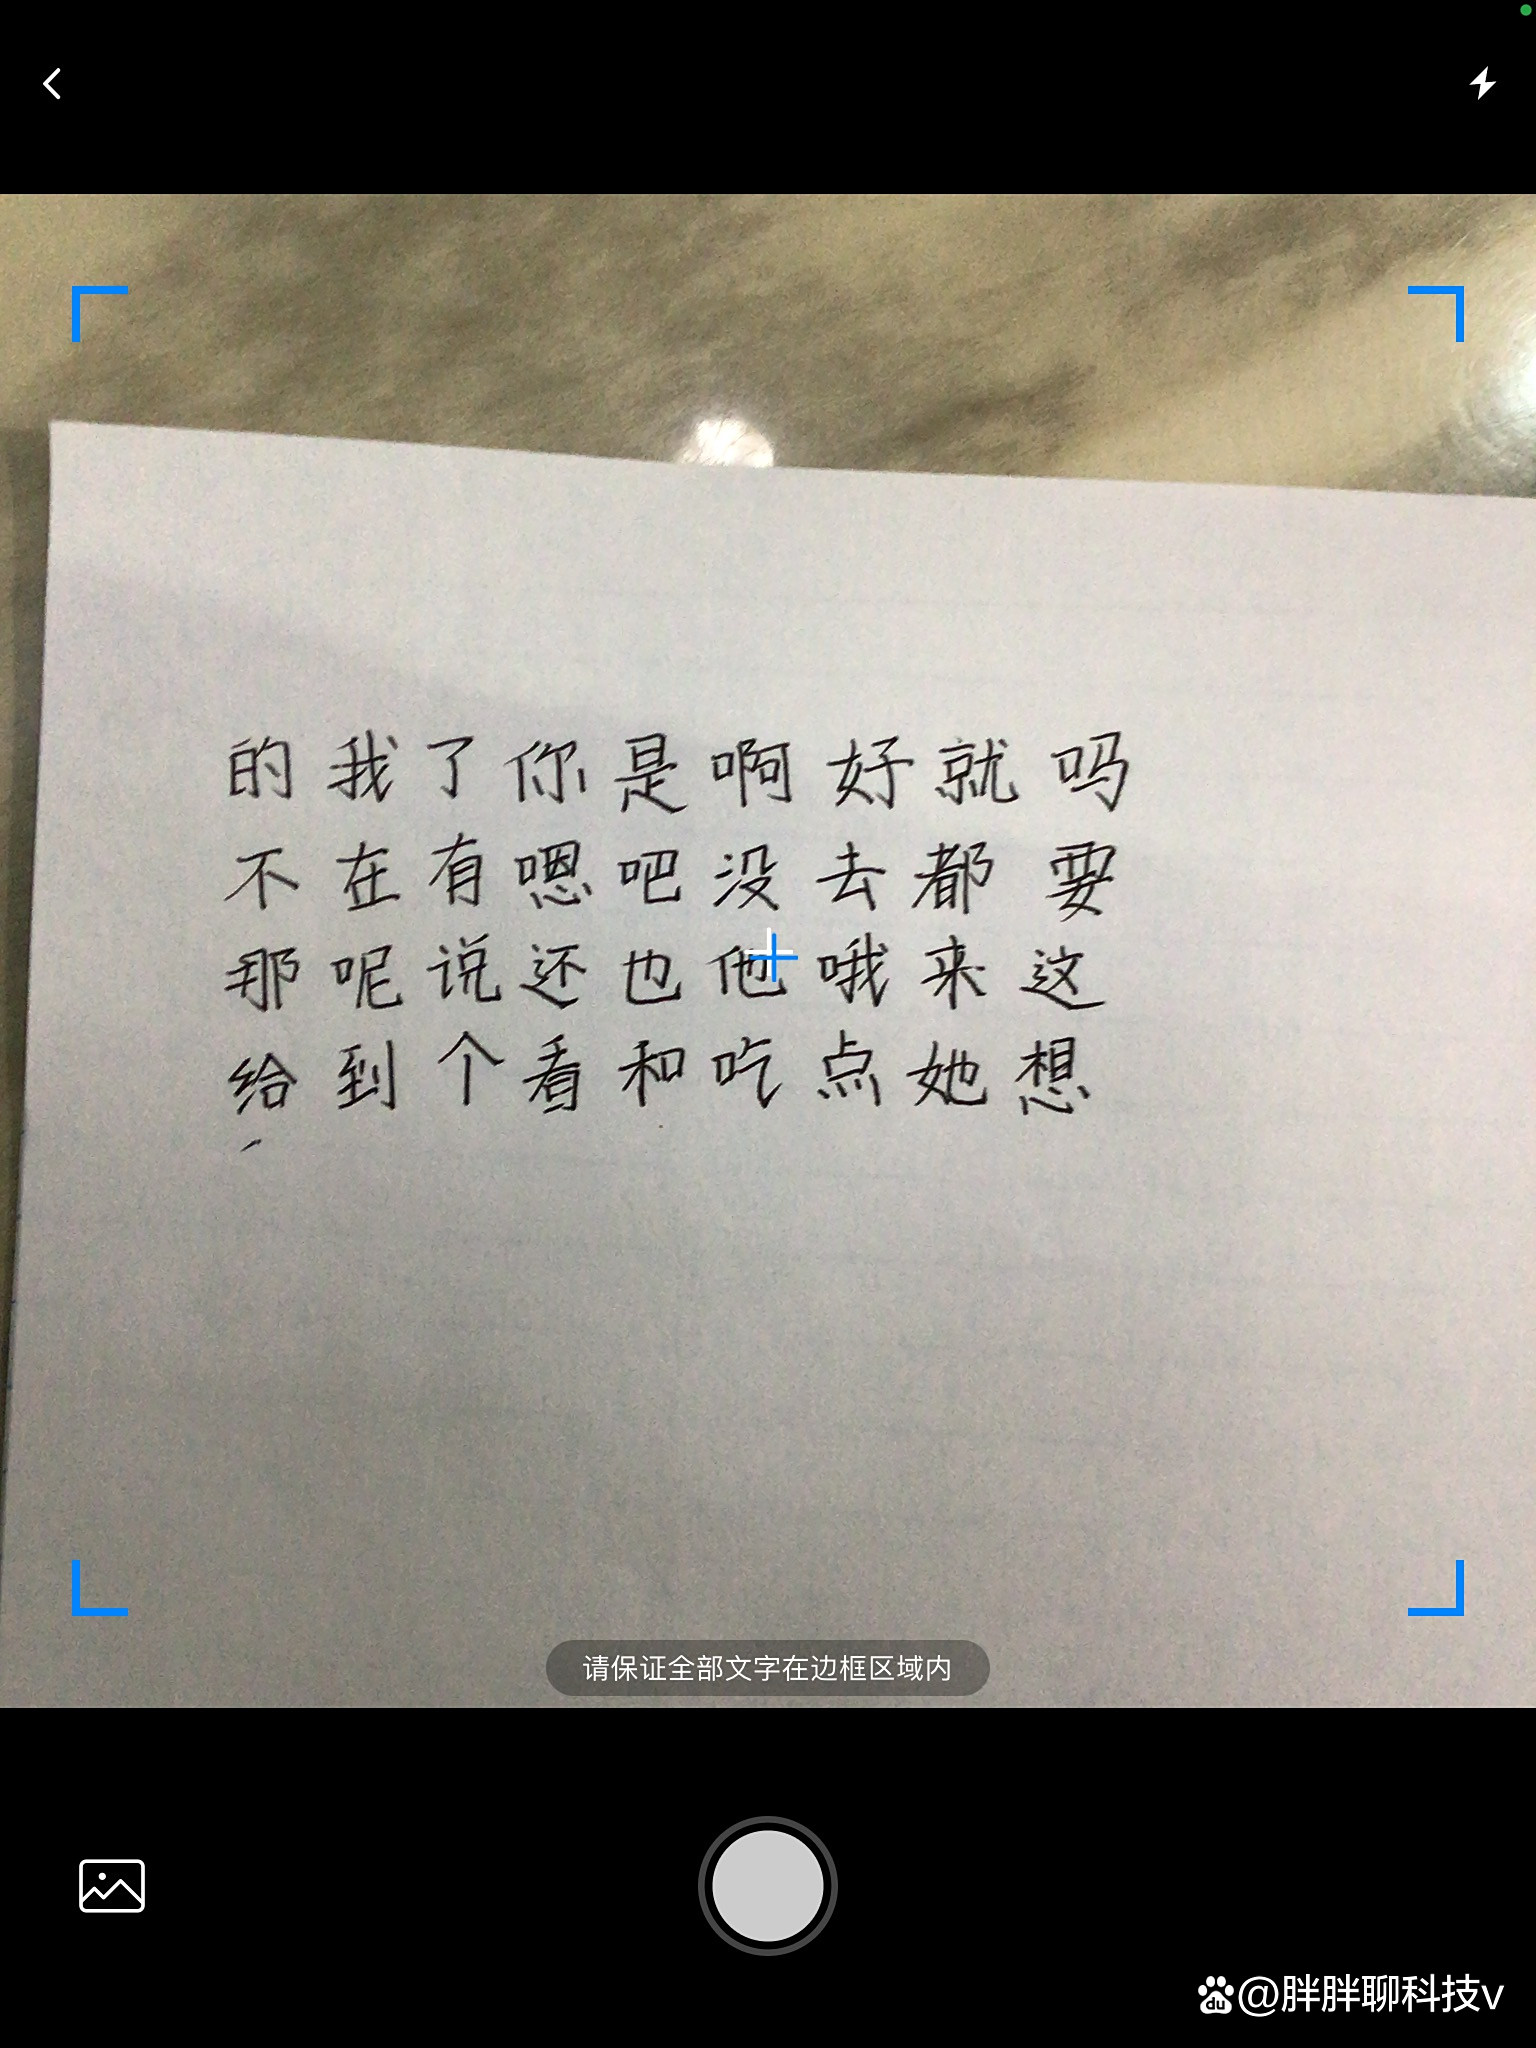 的我了你是啊好就吗
不在有嗯吧没去都要
那呢说还也他哦来这
给到个看和吃点她想
请保证全部文字在边框区域内
du@胖胖聊科技v